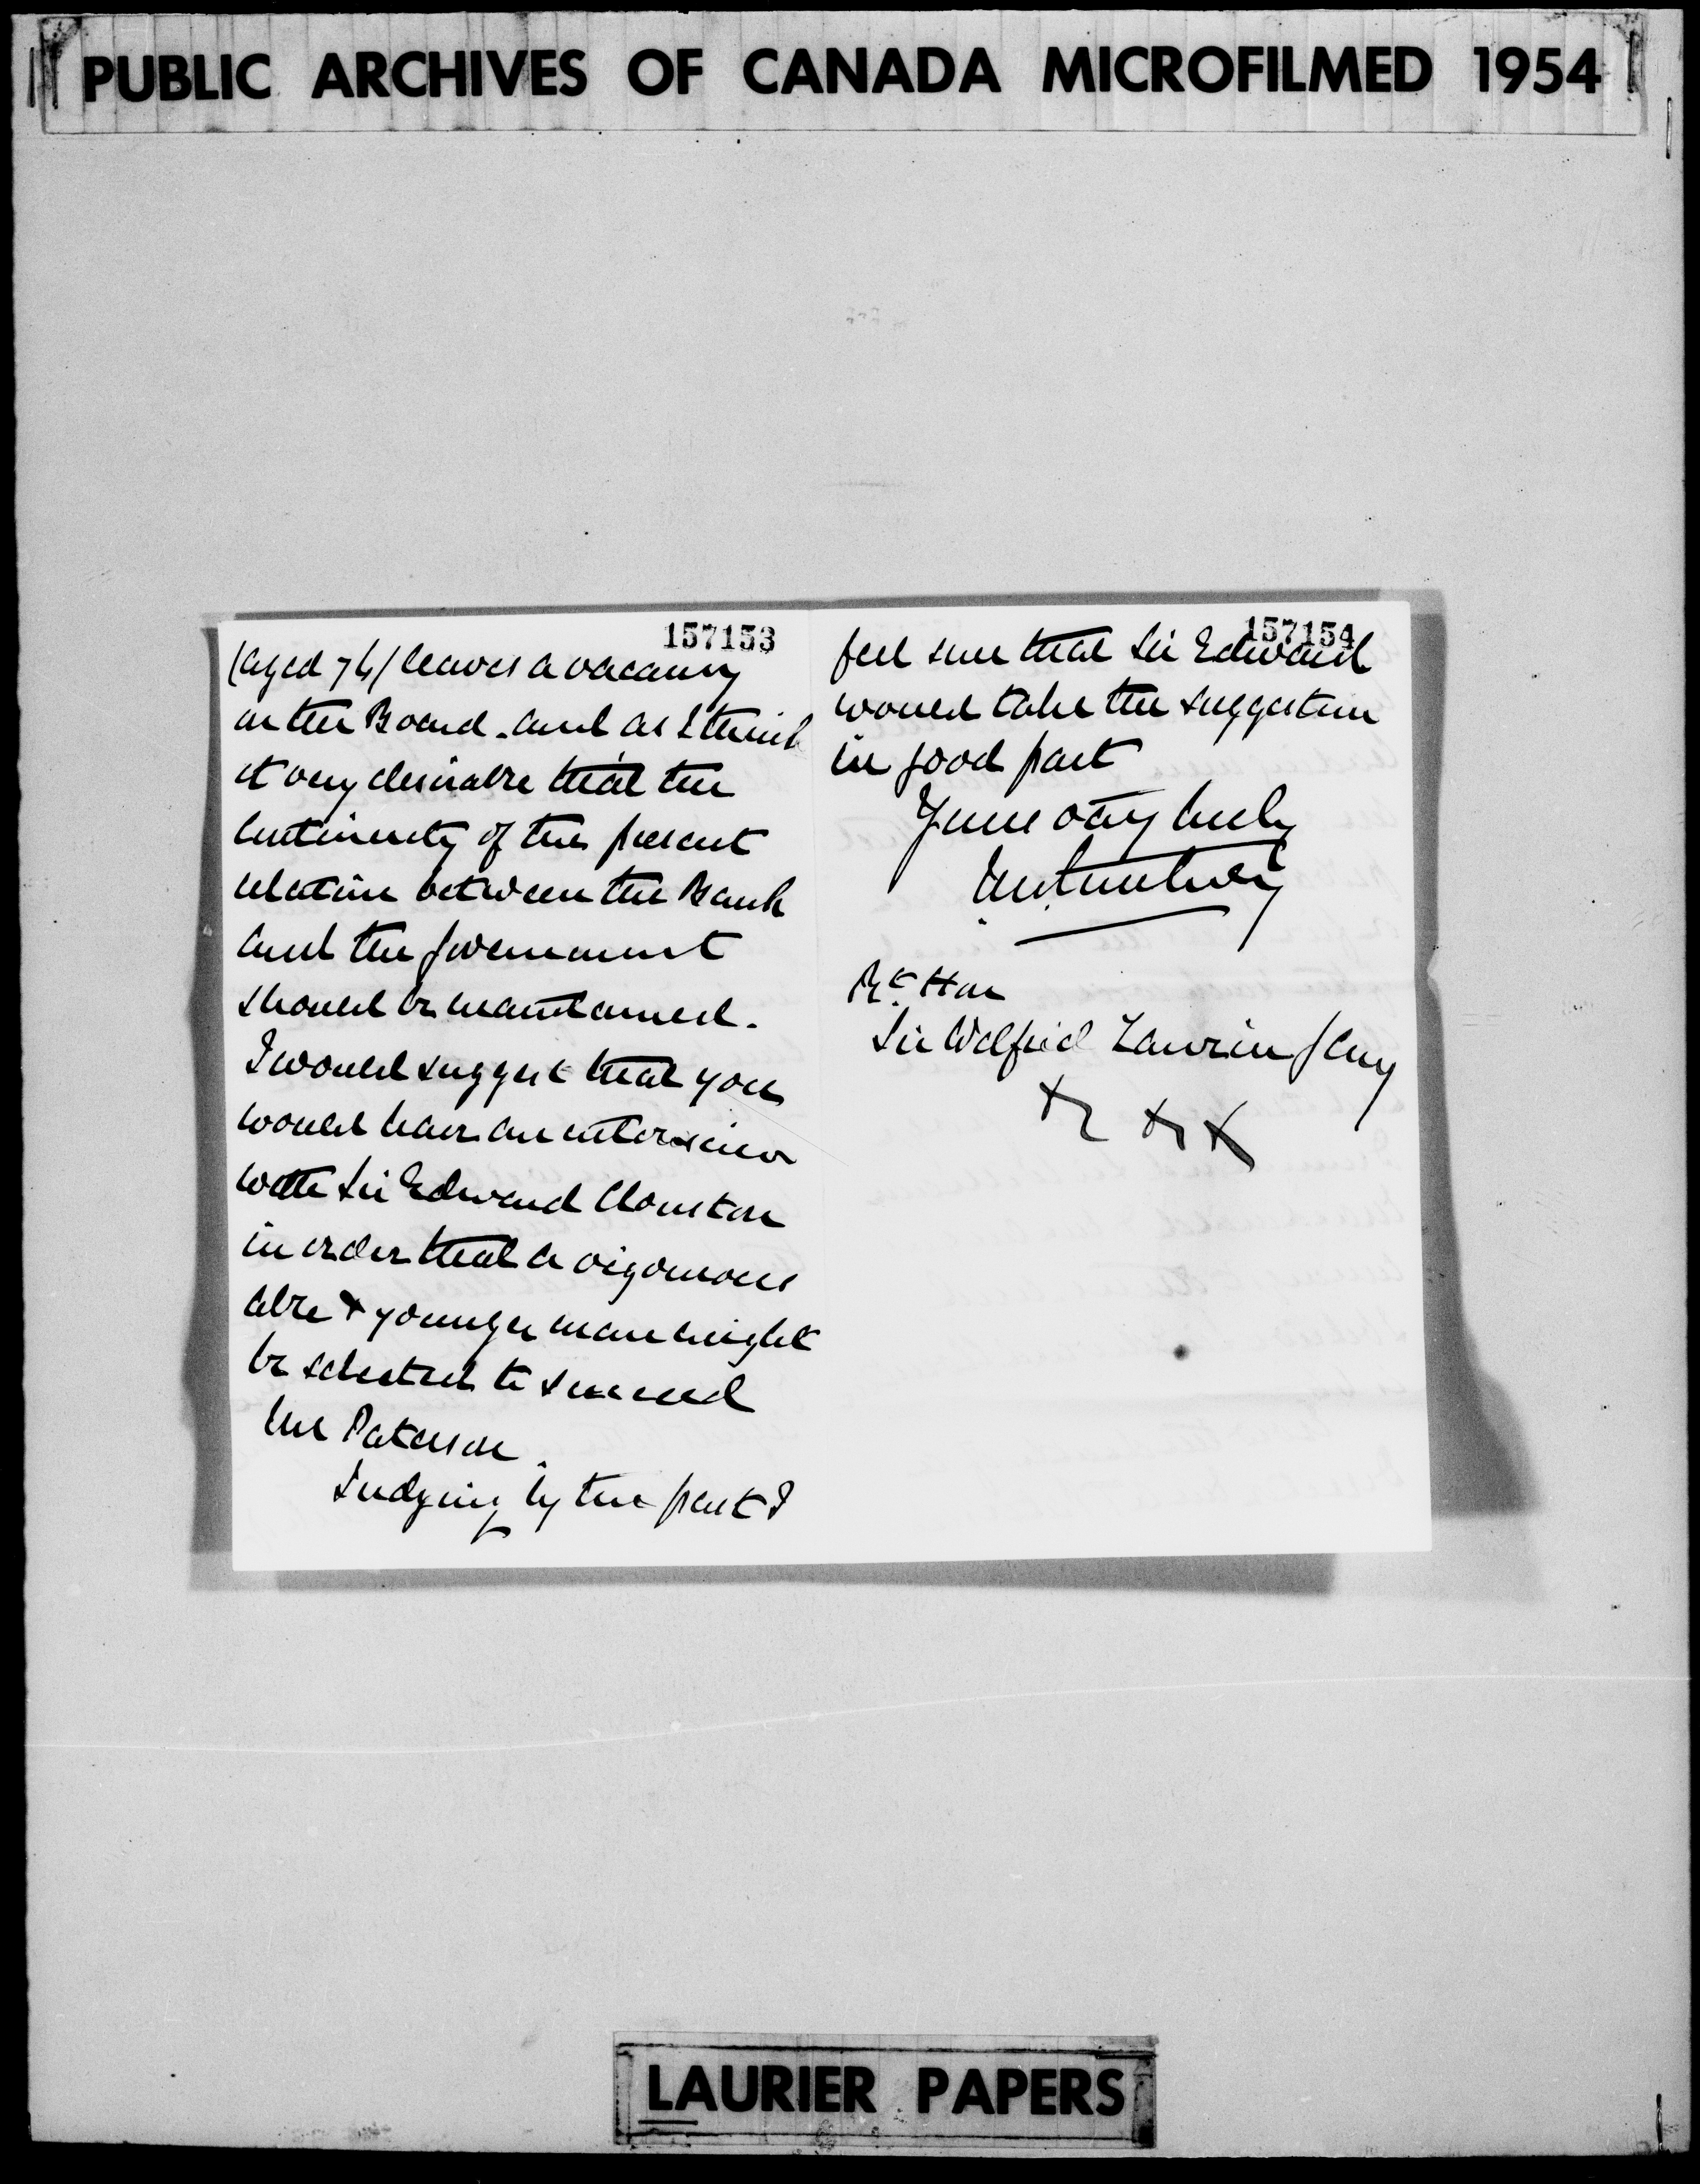 PUBLIC ARCHIVES OF CANADA MICROFILMED 1954
157153
(aged 74/ leaves a vacancy
on the Board. and as I think
it very desirable that the
continuity of the present
relation between the Bank
and the Government
should be maintained.
I would suggest that you
would have an interview
with Sir Edward Clouston
in order that a vigorous
able & younger man might
be selected to succeed
Mr Paterson.
Judging by the past I
157154
feel sure that Sir Edward
would take the suggestion
in good part
Yours very truly
Rt Hon
Sir Wilfrid Laurier
LAURIER PAPERS